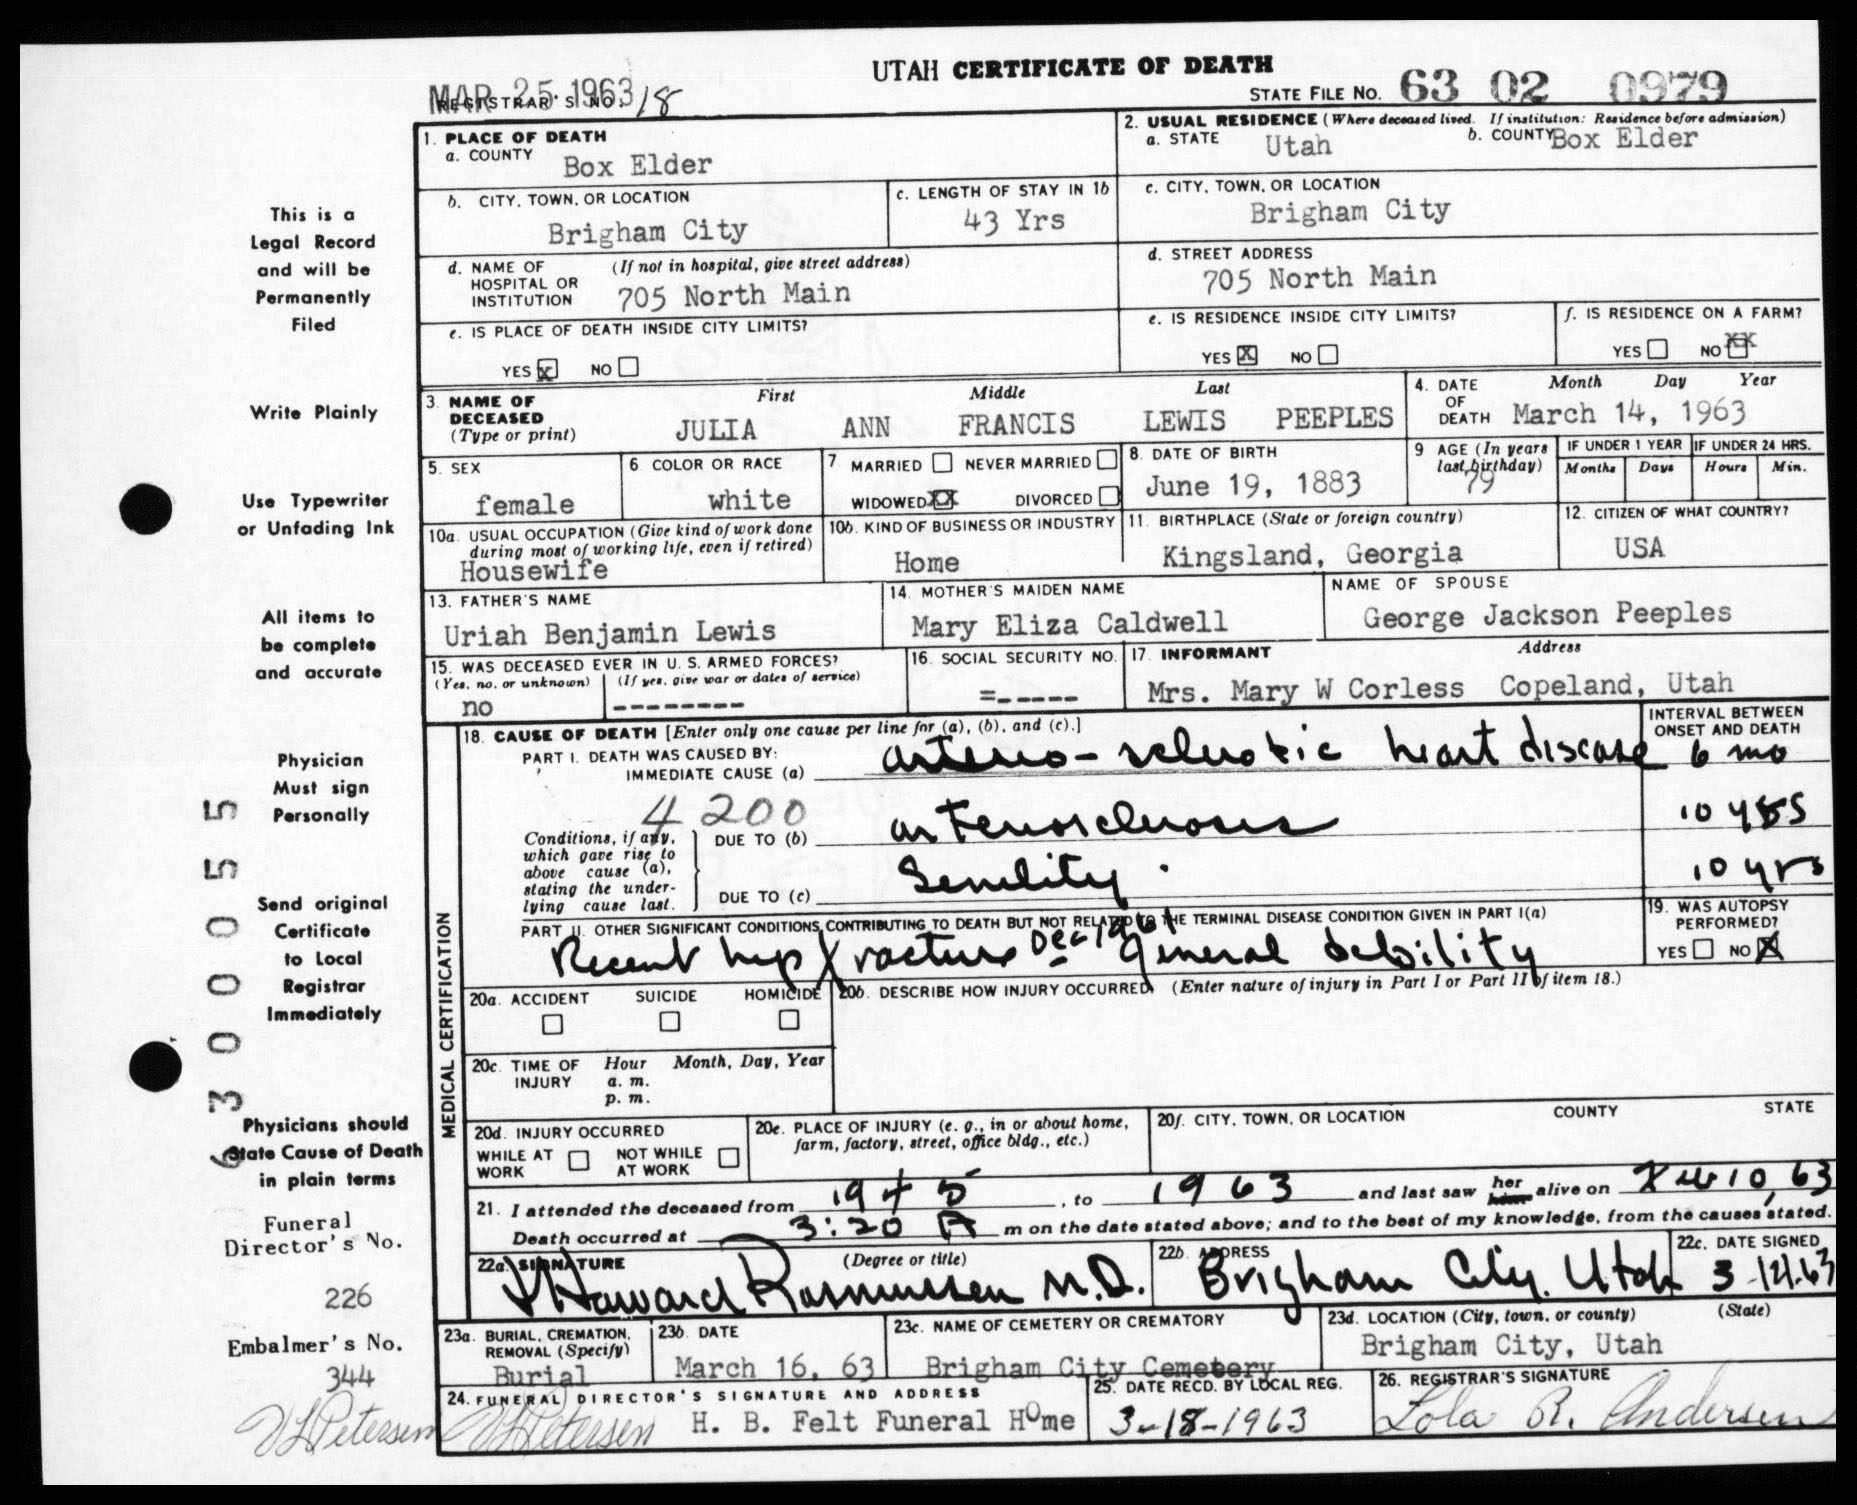 UTAH CERTIFICATE OF DEATH
MAR 25 1963
REGISTRAR'S NO. 18
STATE FILE NO. 63 02 0979
1. PLACE OF DEATH
a. COUNTY
Box Elder
2. USUAL RESIDENCE (Where deceased lived. If institution: Residence before admission)
a. STATE Utah b. COUNTY Box Elder
b. CITY, TOWN, OR LOCATION
Brigham City
c. LENGTH OF STAY IN 1b
43 Yrs
c. CITY, TOWN, OR LOCATION
Brigham City
d. NAME OF HOSPITAL OR INSTITUTION (If not in hospital, give street address)
705 North Main
d. STREET ADDRESS
705 North Main
e. IS PLACE OF DEATH INSIDE CITY LIMITS?
YES X NO
e. IS RESIDENCE INSIDE CITY LIMITS?
YES X NO
f. IS RESIDENCE ON A FARM?
YES NO XX
3. NAME OF DECEASED (Type or print)
First Middle Last
JULIA ANN FRANCIS LEWIS PEEPLES
4. DATE OF DEATH Month Day Year
March 14, 1963
5. SEX
female
6 COLOR OR RACE
white
7. MARRIED NEVER MARRIED
WIDOWED XX DIVORCED
8. DATE OF BIRTH
June 19, 1883
9 AGE (In years last birthday)
79
IF UNDER 1 YEAR IF UNDER 24 HRS.
Months Days Hours Min.
10a. USUAL OCCUPATION (Give kind of work done during most of working life, even if retired)
Housewife
10b. KIND OF BUSINESS OR INDUSTRY
Home
11. BIRTHPLACE (State or foreign country)
Kingsland, Georgia
12. CITIZEN OF WHAT COUNTRY?
USA
13. FATHER'S NAME
Uriah Benjamin Lewis
14. MOTHER'S MAIDEN NAME
Mary Eliza Caldwell
NAME OF SPOUSE
George Jackson Peeples
15. WAS DECEASED EVER IN U. S. ARMED FORCES?
(Yes, no, or unknown) (If yes, give war or dates of service)
no --------
16. SOCIAL SECURITY NO.
=-----
17. INFORMANT Address
Mrs. Mary W Corless Copeland, Utah
18. CAUSE OF DEATH [Enter only one cause per line for (a), (b), and (c).]
INTERVAL BETWEEN ONSET AND DEATH
PART I. DEATH WAS CAUSED BY:
IMMEDIATE CAUSE (a) arterio-sclerotic heart disease 6 mo
4200
Conditions, if any, which gave rise to above cause (a), stating the underlying cause last.
DUE TO (b) arteriosclerosis 10 yrs
DUE TO (c) Senility 10 yrs
PART II. OTHER SIGNIFICANT CONDITIONS CONTRIBUTING TO DEATH BUT NOT RELATED TO THE TERMINAL DISEASE CONDITION GIVEN IN PART I(a)
Recent hip fracture Dec 1961 General debility
19. WAS AUTOPSY PERFORMED?
YES NO X
MEDICAL CERTIFICATION
20a. ACCIDENT SUICIDE HOMICIDE
20b. DESCRIBE HOW INJURY OCCURRED. (Enter nature of injury in Part I or Part II of item 18.)
20c. TIME OF INJURY Hour Month, Day, Year
a. m.
p. m.
20d. INJURY OCCURRED
WHILE AT WORK NOT WHILE AT WORK
20e. PLACE OF INJURY (e. g., in or about home, farm, factory, street, office bldg., etc.)
20f. CITY, TOWN, OR LOCATION COUNTY STATE
21. I attended the deceased from 1945, to 1963 and last saw her him alive on Feb 10, 63
Death occurred at 3:20 A m on the date stated above; and to the best of my knowledge, from the causes stated.
22a. SIGNATURE (Degree or title)
J Howard Rasmussen M.D.
22b. ADDRESS
Brigham City. Utah
22c. DATE SIGNED
3-14-63
23a. BURIAL, CREMATION, REMOVAL (Specify)
Burial
23b. DATE
March 16, 63
23c. NAME OF CEMETERY OR CREMATORY
Brigham City Cemetery
23d. LOCATION (City, town, or county) (State)
Brigham City, Utah
24. FUNERAL DIRECTOR'S SIGNATURE AND ADDRESS
Petersen H. B. Felt Funeral Home
25. DATE RECD. BY LOCAL REG.
3-18-1963
26. REGISTRAR'S SIGNATURE
Lola R. Andersen
This is a
Legal Record
and will be
Permanently
Filed
Write Plainly
Use Typewriter
or Unfading Ink
All items to
be complete
and accurate
Physician
Must sign
Personally
Send original
Certificate
to Local
Registrar
Immediately
Physicians should
State Cause of Death
in plain terms
Funeral
Director's No.
226
Embalmer's No.
344
Petersen
63000555